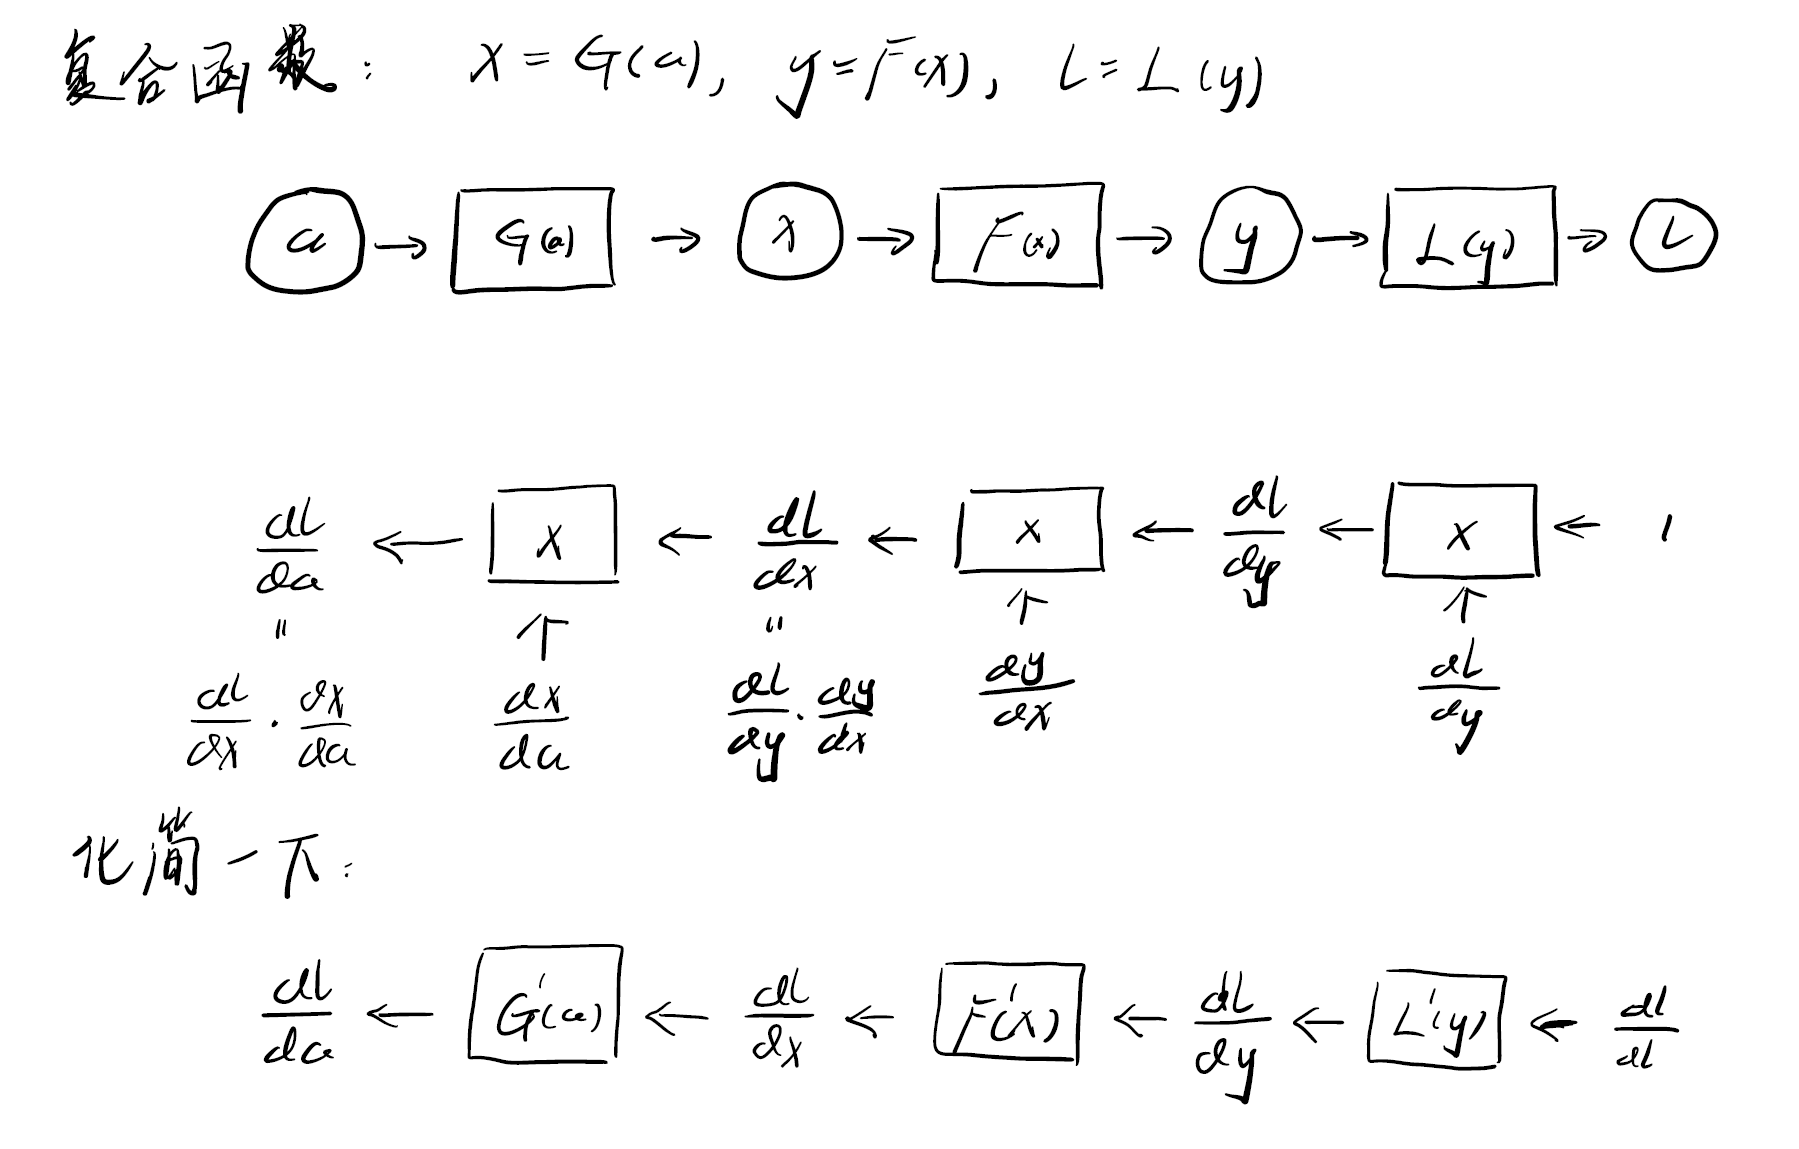 复合函数： x = G(a), y = F(x), L = L(y)
a → G(a) → x → F(x) → y → L(y) → L
dL/da ← × ← dL/dx ← × ← dL/dy ← × ← 1
" ↑ " ↑ ↑
dL/dx · dx/da dx/da dL/dy · dy/dx dy/dx dL/dy
化简一下：
dL/da ← G'(a) ← dL/dx ← F'(x) ← dL/dy ← L'(y) ← dL/dL